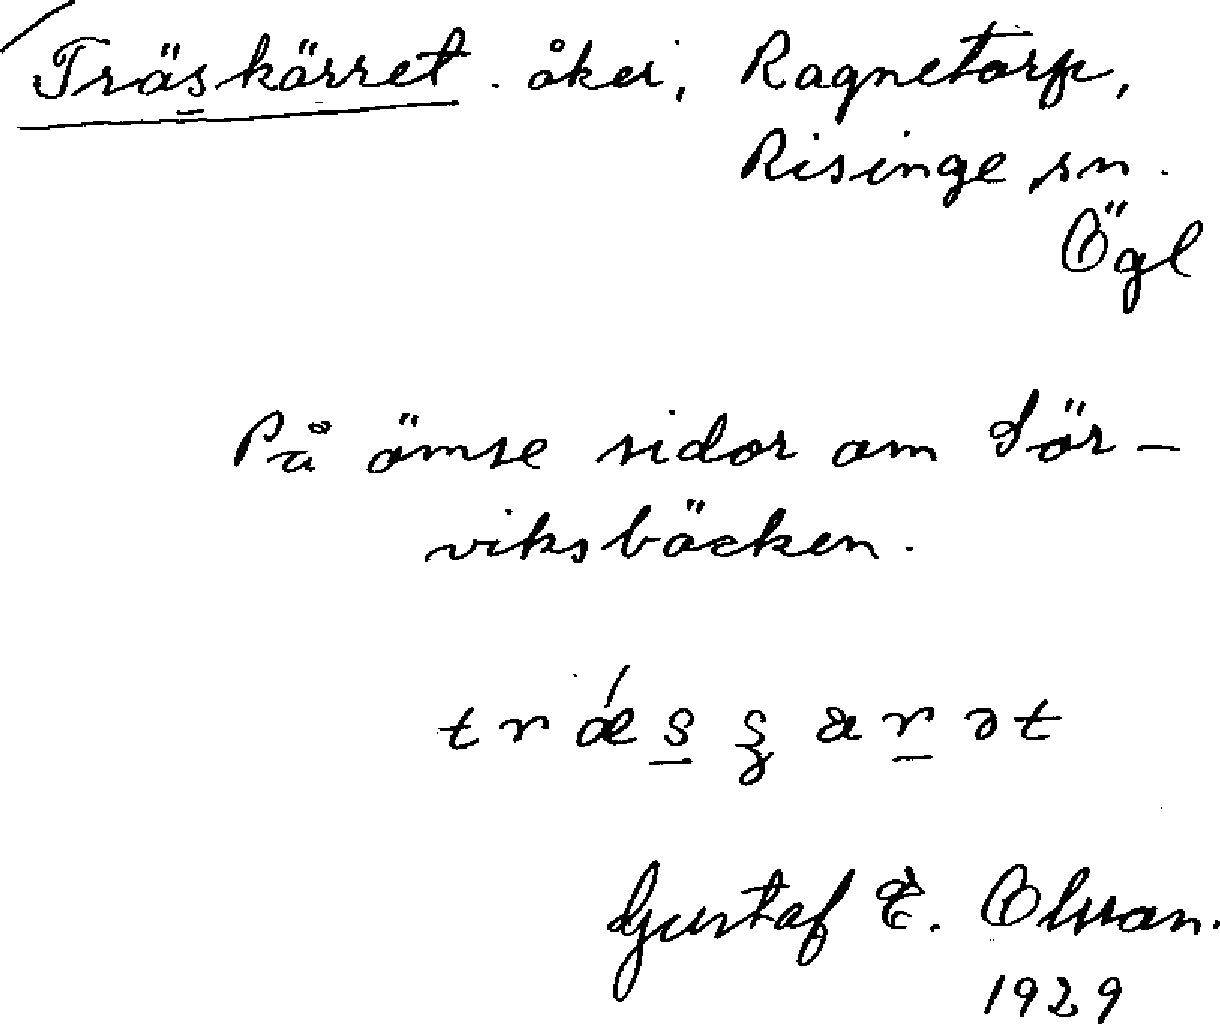 Träskärret. åker, Ragnetorp,
Risinge sn.
Ögl
På ömse sidor om Sör-
viksbäcken.
Gustaf E. Olsson.
1929